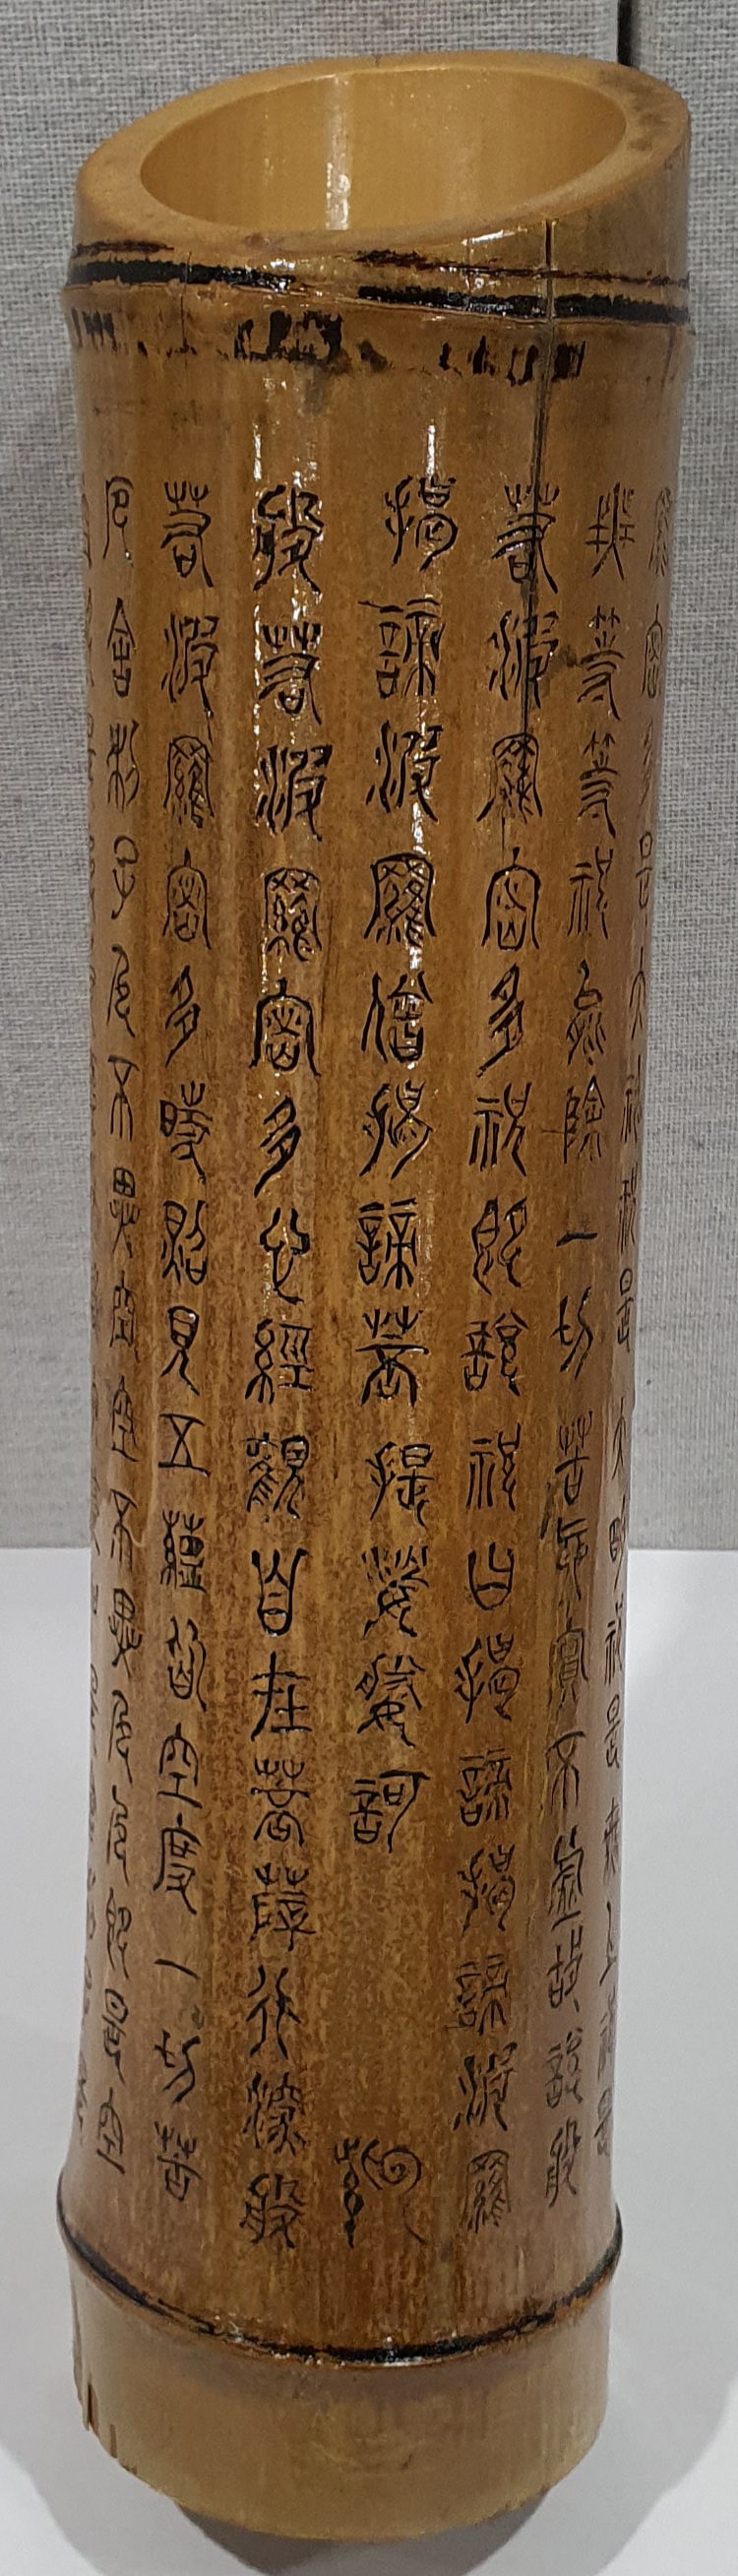 羅密多是大神咒是大明咒是無上咒是
無等等咒能除一切苦真實不虛故說般
若波羅密多咒即說咒曰揭諦揭諦波羅
揭諦波羅僧揭諦菩提娑婆訶
般若波羅密多心經觀自在菩薩行深般
若波羅密多時照見五蘊皆空度一切苦
厄舍利子色不異空空不異色色即是空